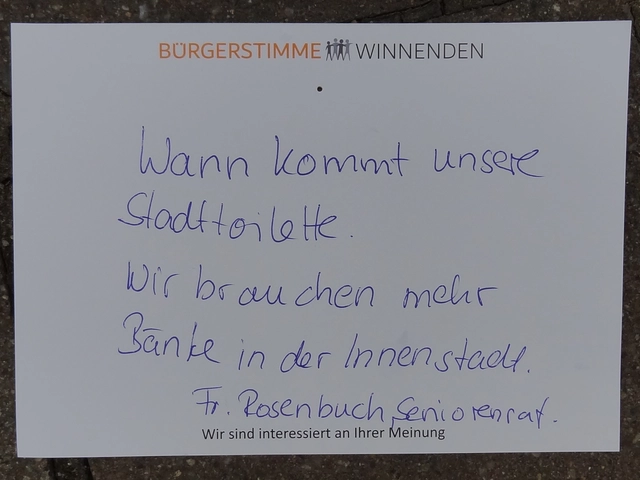 BÜRGERSTIMME WINNENDEN
Wann kommt unsere
Stadttoilette.
Wir brauchen mehr
Bänke in der Innenstadt.
Fr. Rosenbuch, Seniorenrat.
Wir sind interessiert an Ihrer Meinung